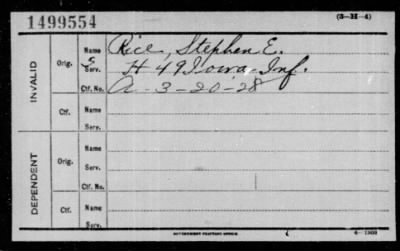 1499554
(3-H-4)
INVALID
Orig.
Name Rice, Stephen E.
S Serv. H 49 Iowa Inf.
Ctf. No. A-3-20-28
Ctf.
Name
Serv.
DEPENDENT
Orig.
Name
Serv.
Ctf. No.
Ctf.
Name
Serv.
GOVERNMENT PRINTING OFFICE